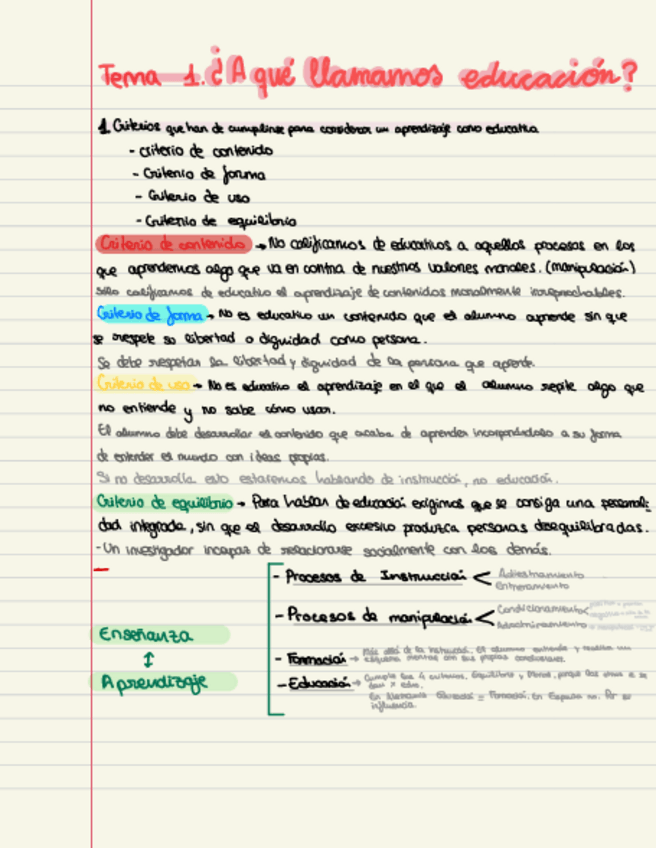 Tema 1. ¿A qué llamamos educación?
1. Criterios que han de cumplirse para considerar un aprendizaje como educativo
- criterio de contenido
- Criterio de forma
- Criterio de uso
- Criterio de equilibrio
Criterio de contenido → No calificamos de educativos a aquellos procesos en los
que aprendemos algo que va en contra de nuestros valores morales. (manipulación)
Sólo calificamos de educativo el aprendizaje de contenidos moralmente irreprochables.
Criterio de forma → No es educativo un contenido que el alumno aprende sin que
se respete su libertad o dignidad como persona.
Se debe respetar la libertad y dignidad de la persona que aprende.
Criterio de uso → No es educativo el aprendizaje en el que el alumno repite algo que
no entiende y no sabe cómo usar.
El alumno debe desarrollar el contenido que acaba de aprender incorporándolo a su forma
de entender el mundo con ideas propias.
Si no desarrolla esto estaremos hablando de instrucción, no educación.
Criterio de equilibrio → Para hablar de educación exigimos que se consiga una personali-
dad integrada, sin que el desarrollo excesivo produzca personas desequilibradas.
- Un investigador incapaz de relacionarse socialmente con los demás.
Enseñanza
↕
Aprendizaje
- Procesos de Instrucción < Adiestramiento
Entrenamiento
- Procesos de manipulación < Condicionamiento <
Adoctrinamiento
- Formación → Más allá de la instrucción. El alumno entiende y realiza un
esquema mental con sus propias conclusiones.
- Educación → Cumple los 4 criterios. Equilibrio y
En Alemania Educación = Formación. En España no. Por su
influencia.